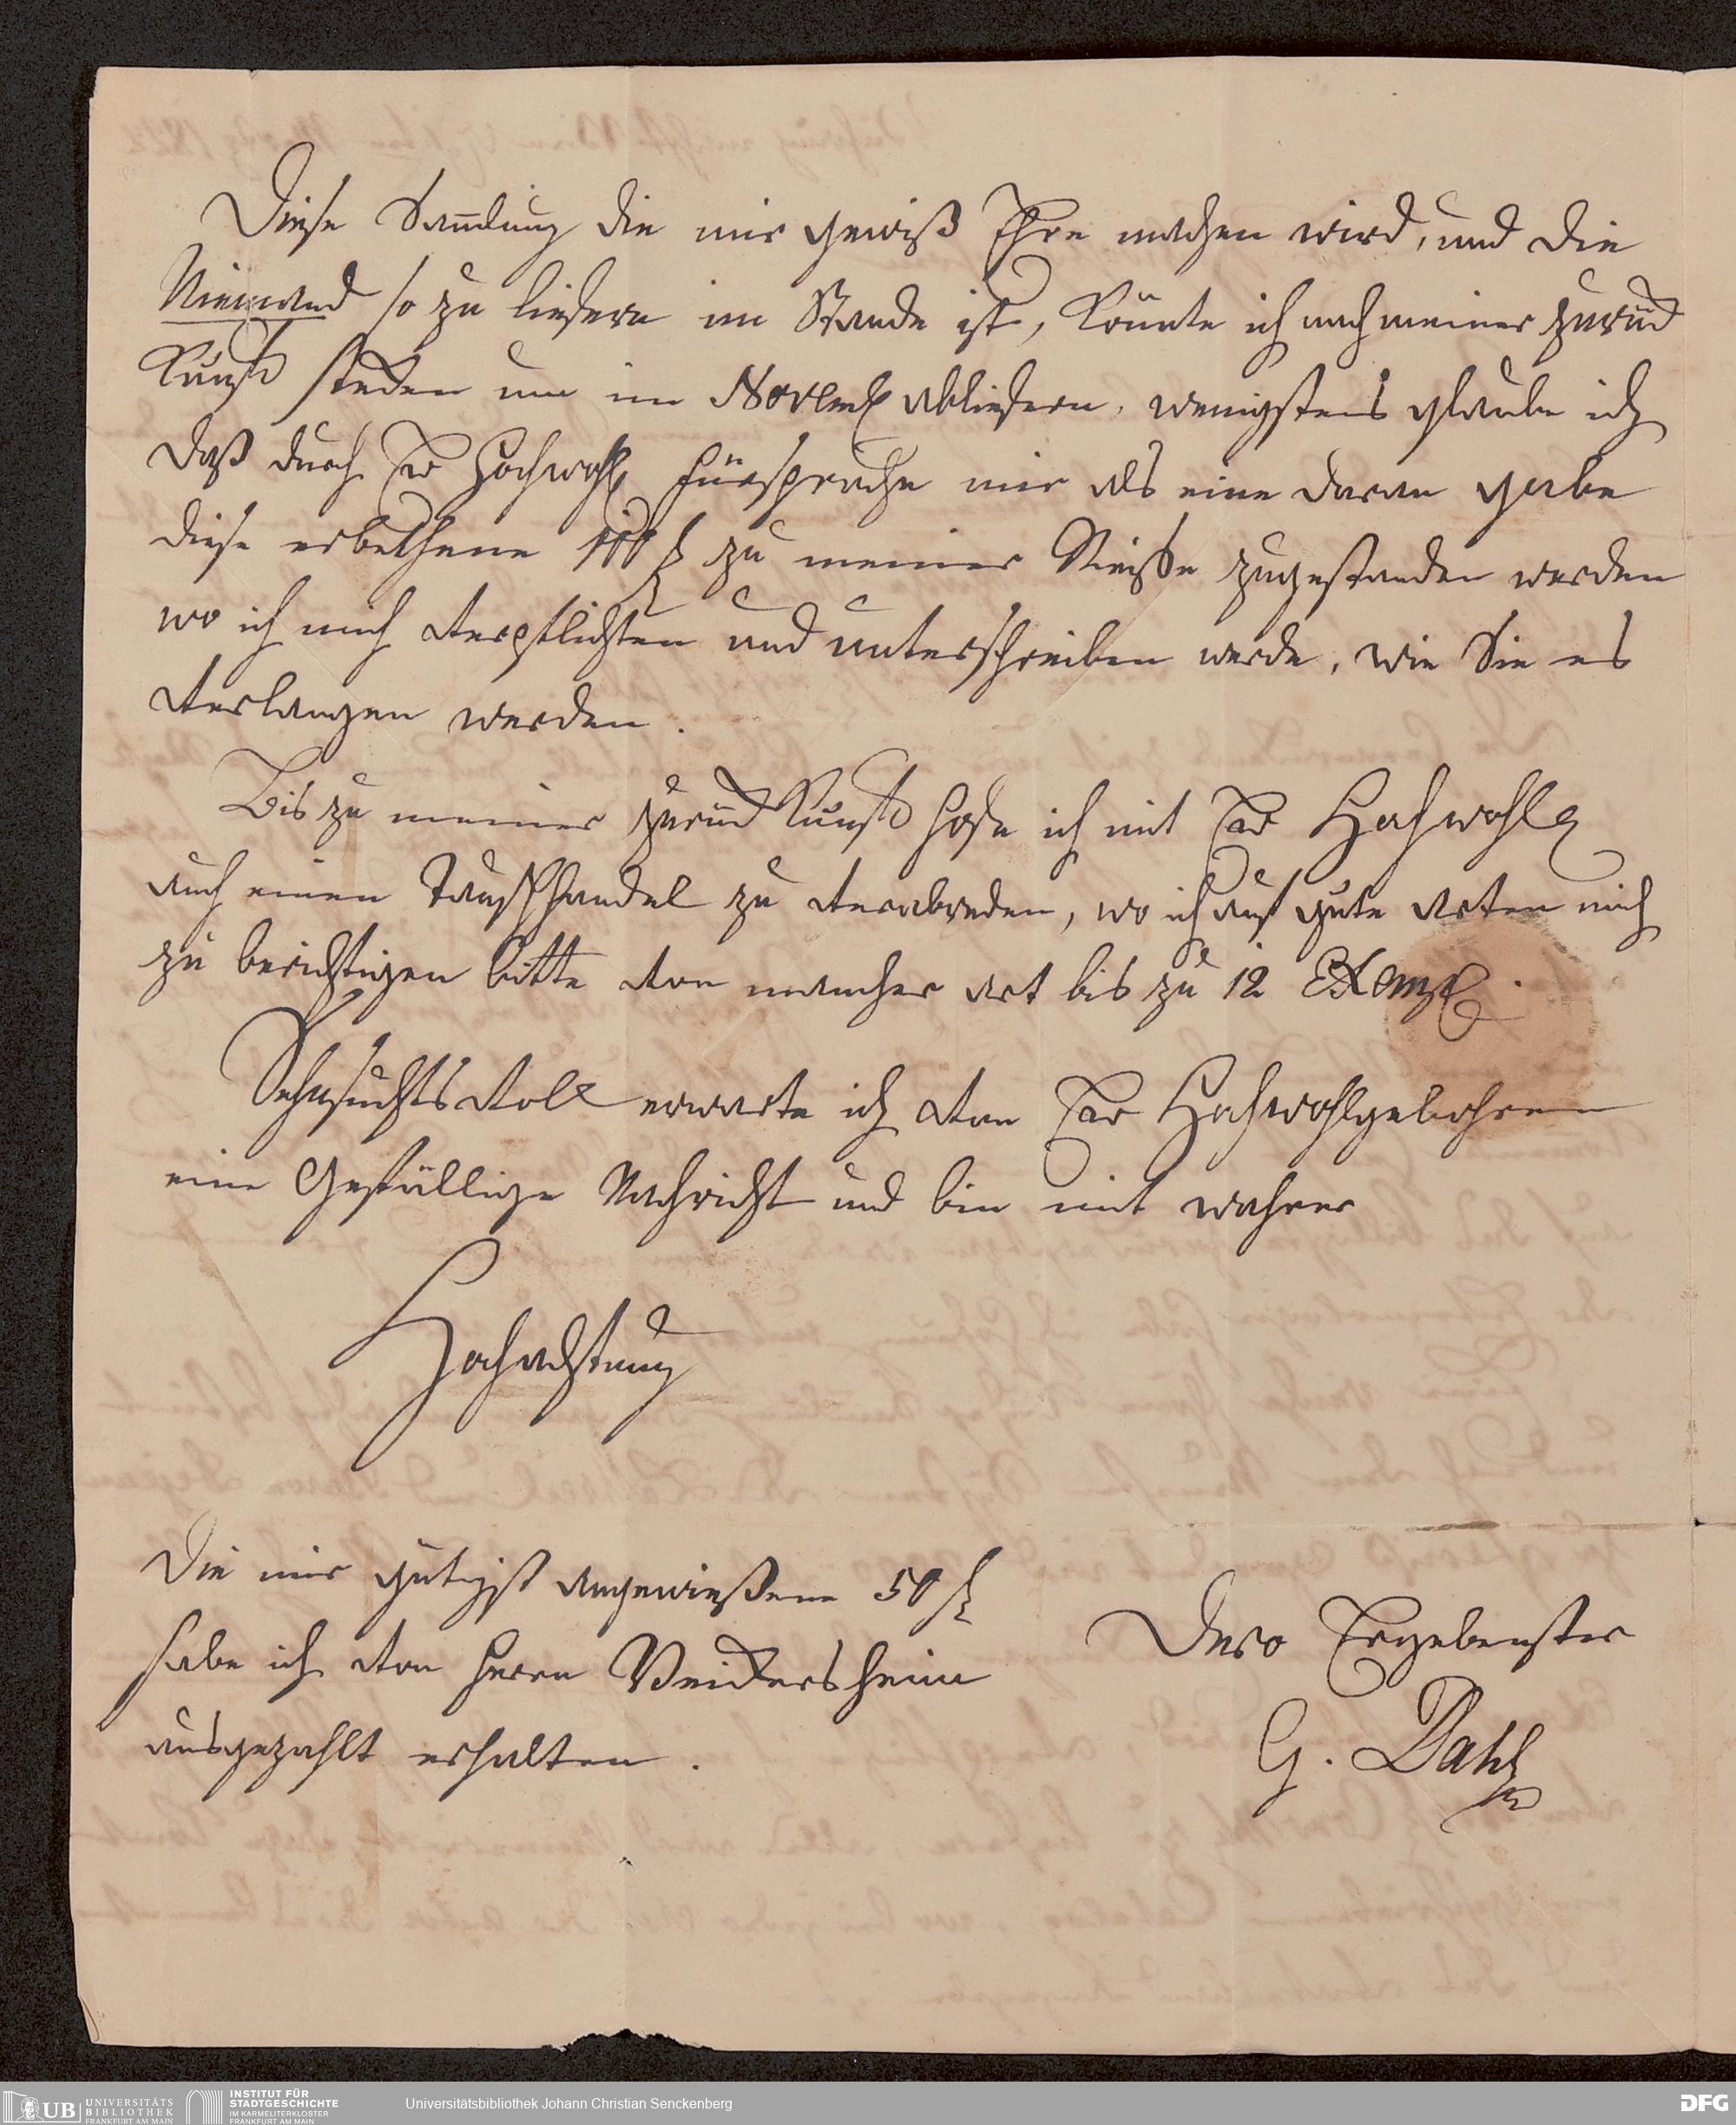 Diese Sam̄lung die mir gewiß Ehre machen wird, und die
Niemand so zu liefern im Stande ist, könte ich nach meiner zurück
kunft stecken um im Novemb abliefern, wenigstens glaube ich
daß durch Ew Hochwohlg fürsprache mir als eine daran gabe
diese erbethene 100 f zu meiner Reiße zugestanden werden
wo ich mich verpflichten und unterschreiben werde, wie Sie es
verlangen werden.
Bis zu meiner zurück kunft hofe ich mit Ew Hochwohlg
auch einen Tauschhandel zu verabreden, wo ich auf gute arten mich
zu berichtigen bitte von mancher art bis zu 12 Exempl.
Sehnsuchts voll erwarte ich von Ew Hochwohlgebohren
eine Gefällige Nachricht und bin mit wahrer
Hochachtung
Die mir gütigst angewießene 50 f
habe ich von Herrn Weickersheim
ausgezahlt erhalten.
Dero Ergebenster
G. Dahl
UB UNIVERSITÄTS
BIBLIOTHEK
FRANKFURT AM MAIN
INSTITUT FÜR
STADTGESCHICHTE
IM KARMELITERKLOSTER
FRANKFURT AM MAIN
Universitätsbibliothek Johann Christian Senckenberg
DFG